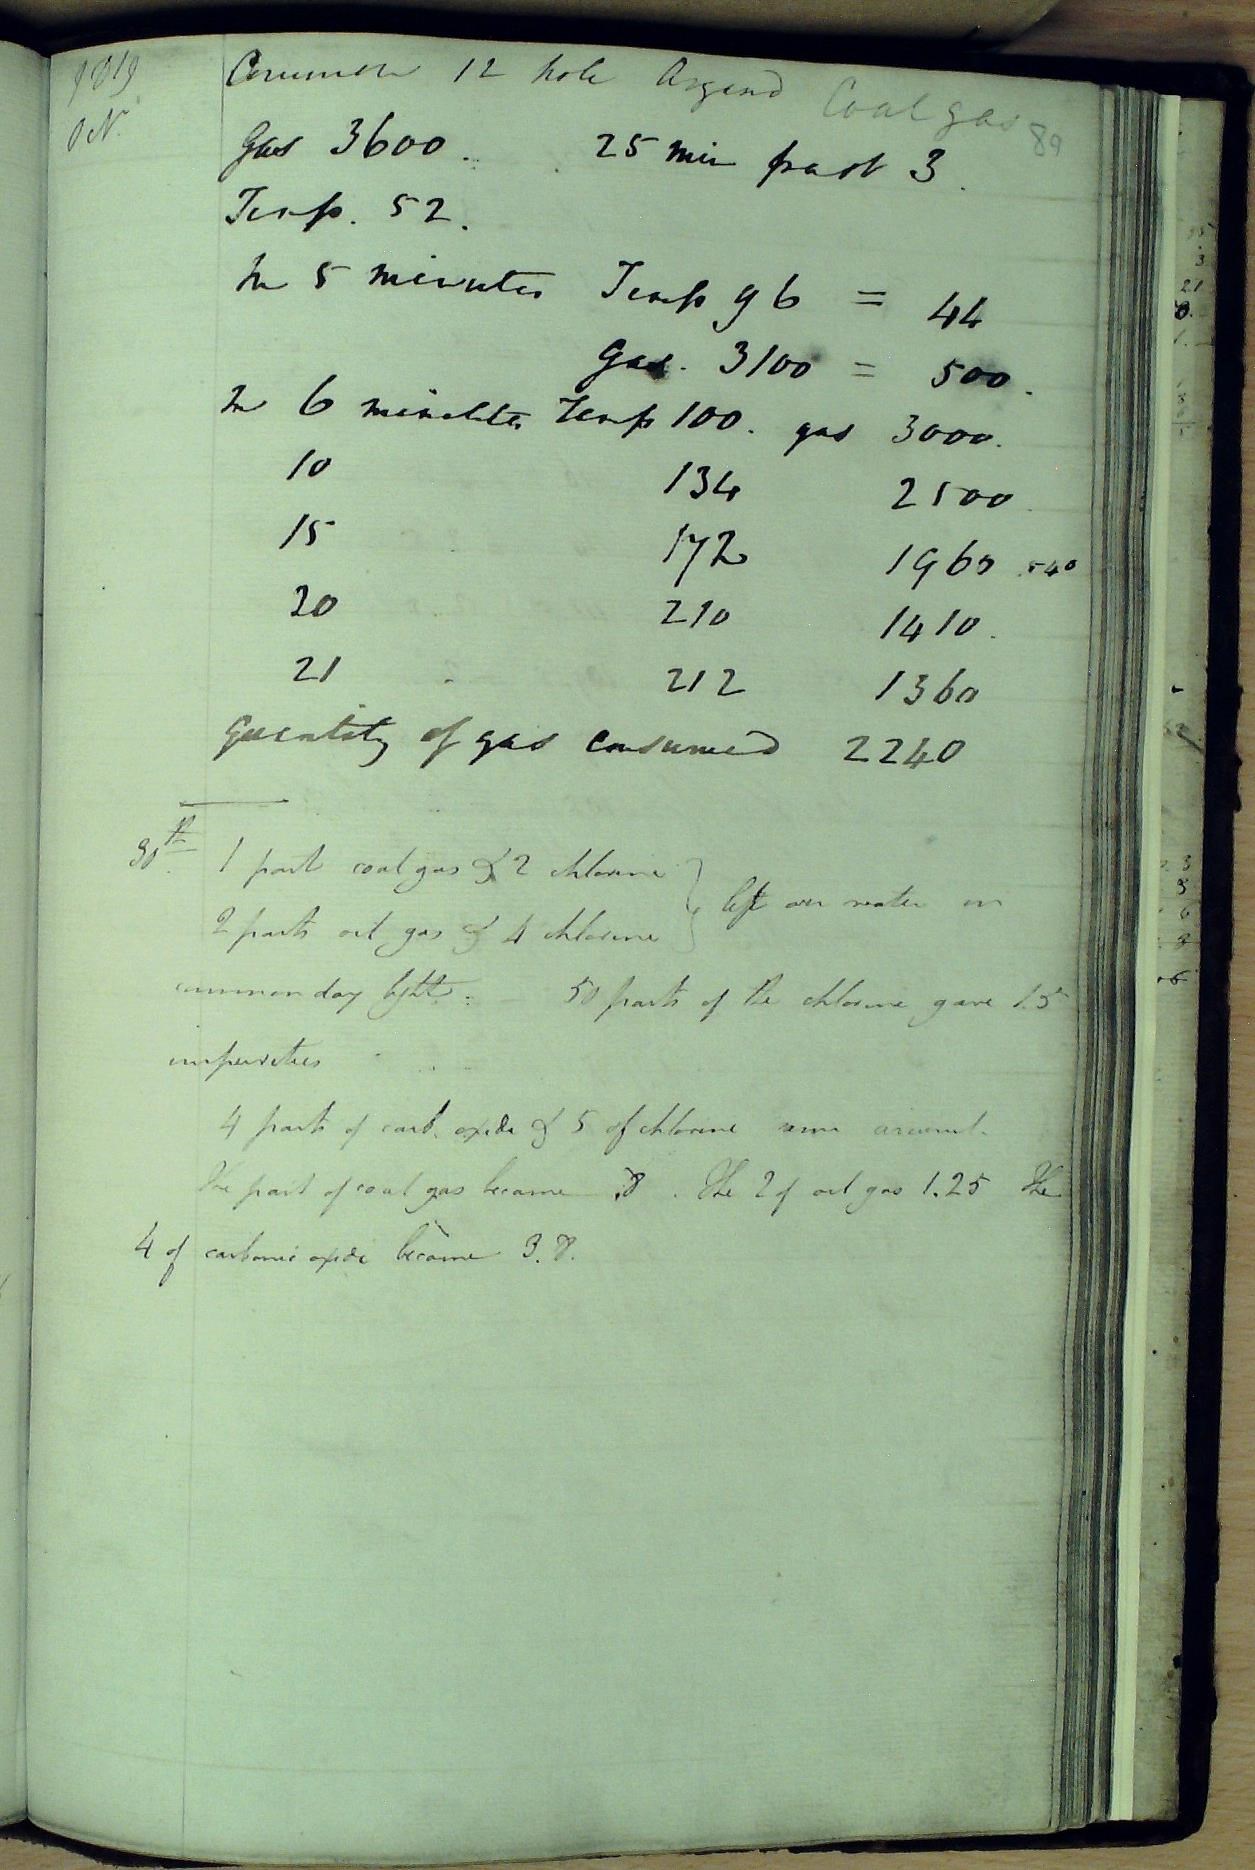 1819
Oct.
Common 12 hole Argand Coal gas
89
Gas 3600. 25 min past 3.
Temp. 52.
In 5 minutes Temp 96 = 44
Gas. 3100 = 500.
In 6 minutes Temp 100. gas 3000.
10 134 2500
15 172 1960 540
20 210 1410.
21 212 1360
Quantity of gas consumed 2240
30th 1 part coal gas & 2 chlorine
2 parts oil gas & 4 chlorine } left over water in
common day light. 50 parts of the chlorine gave 1.5
impurities
4 parts of carb. oxide & 5 of chlorine
The part of coal gas became .8. The 2 of oil gas 1.25 The
4 of carbonic oxide became 3.8.